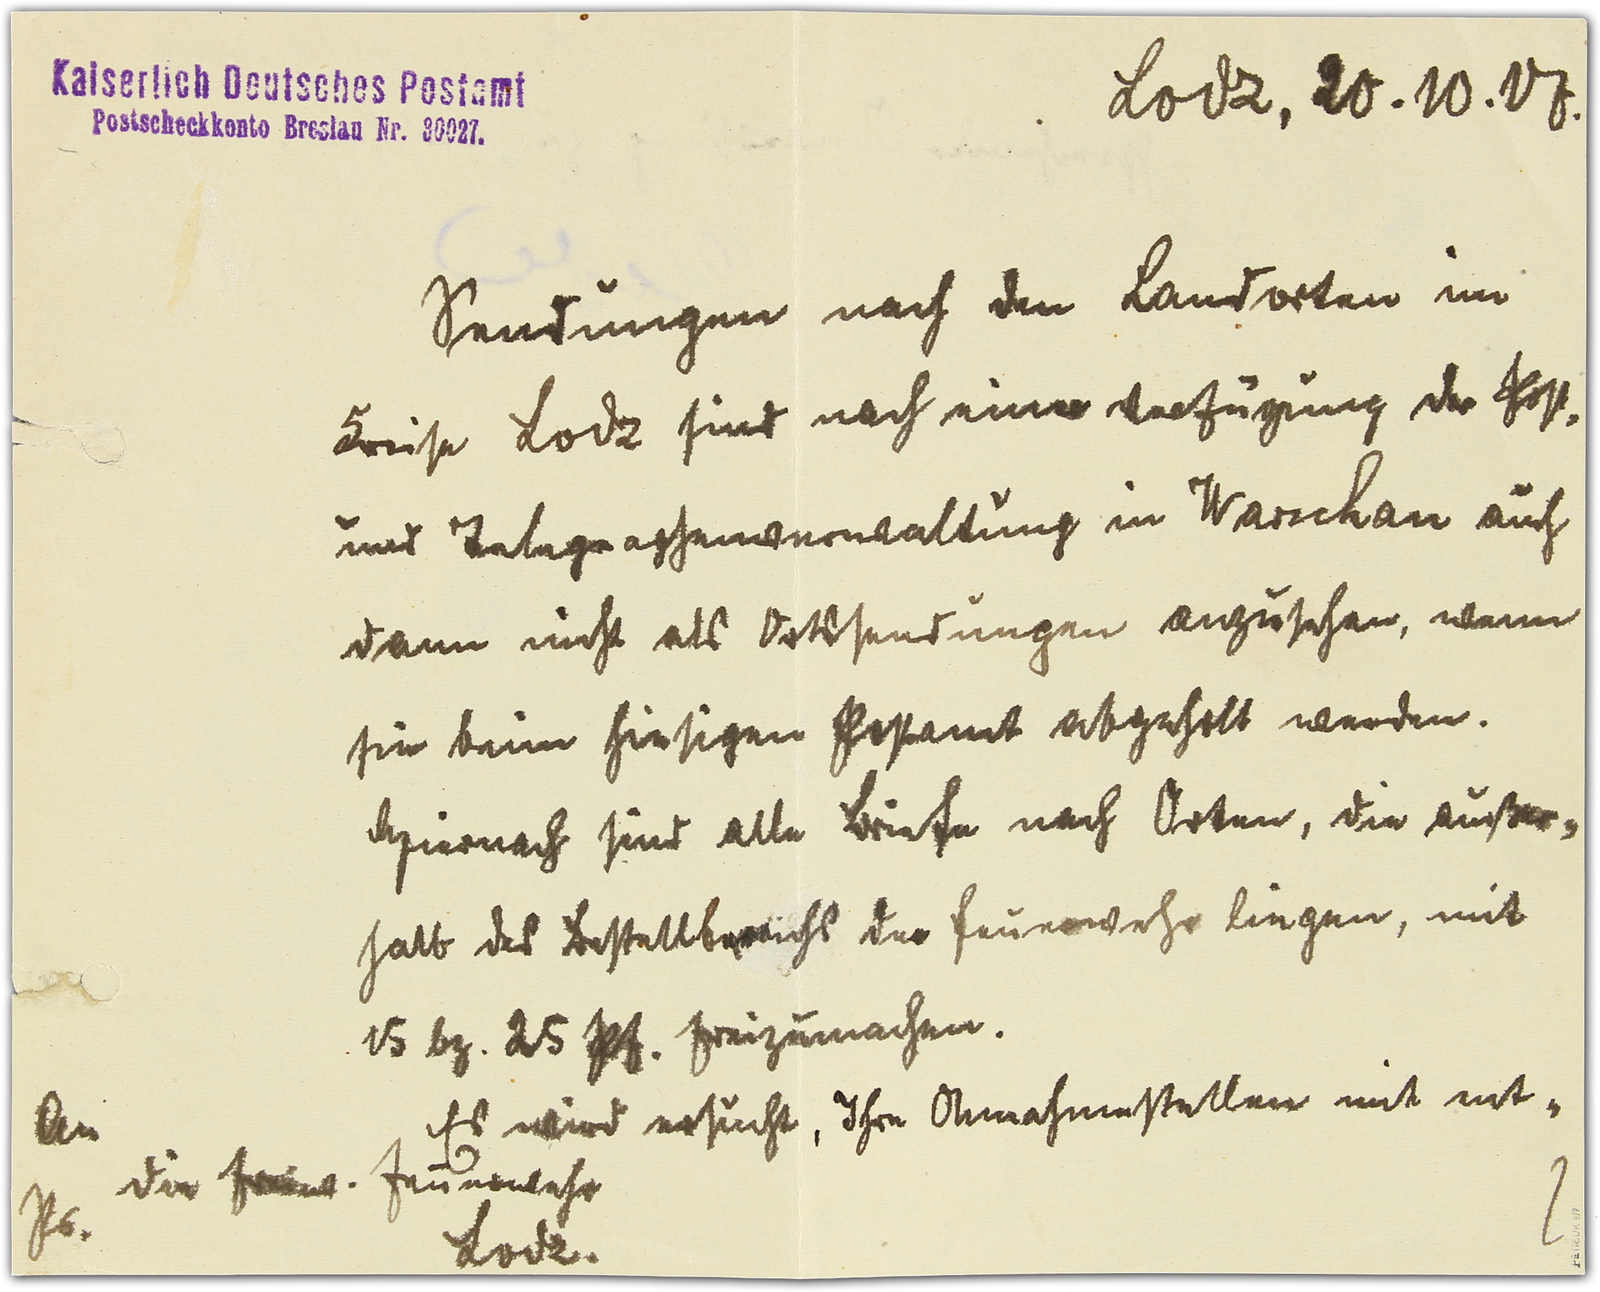 Kaiserlich Deutsches Postamt
Postscheckkonto Breslau Nr. 30027.
Lodz, 20.10.17.
Sendungen nach den Landorten im
Kreise Lodz sind nach einer Verfügung der Post-
und Telegraphenverwaltung in Warschau auch
dann nicht als Ortssendungen anzusehen, wenn
sie beim hiesigen Postamt abgeholt werden.
Hiernach sind alle Briefe nach Orten, die außer-
halb des Bestellbereichs der Feuerwehr liegen, mit
15 bz. 25 Pf. freizumachen.
Es wird ersucht, Ihre Annahmestellen mit ent-
An
die freiw. Feuerwehr
Ps.
Lodz.